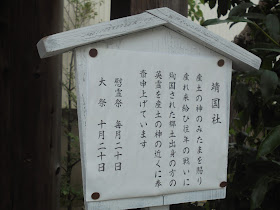 靖国社
産土の神のみたまを賜り
産れ来給ひ往年の戦いに
殉国された郷土出身の方の
英霊を産土の神の近くに奉
斎申上げています
慰霊祭 毎月二十日
大祭 十月二十日